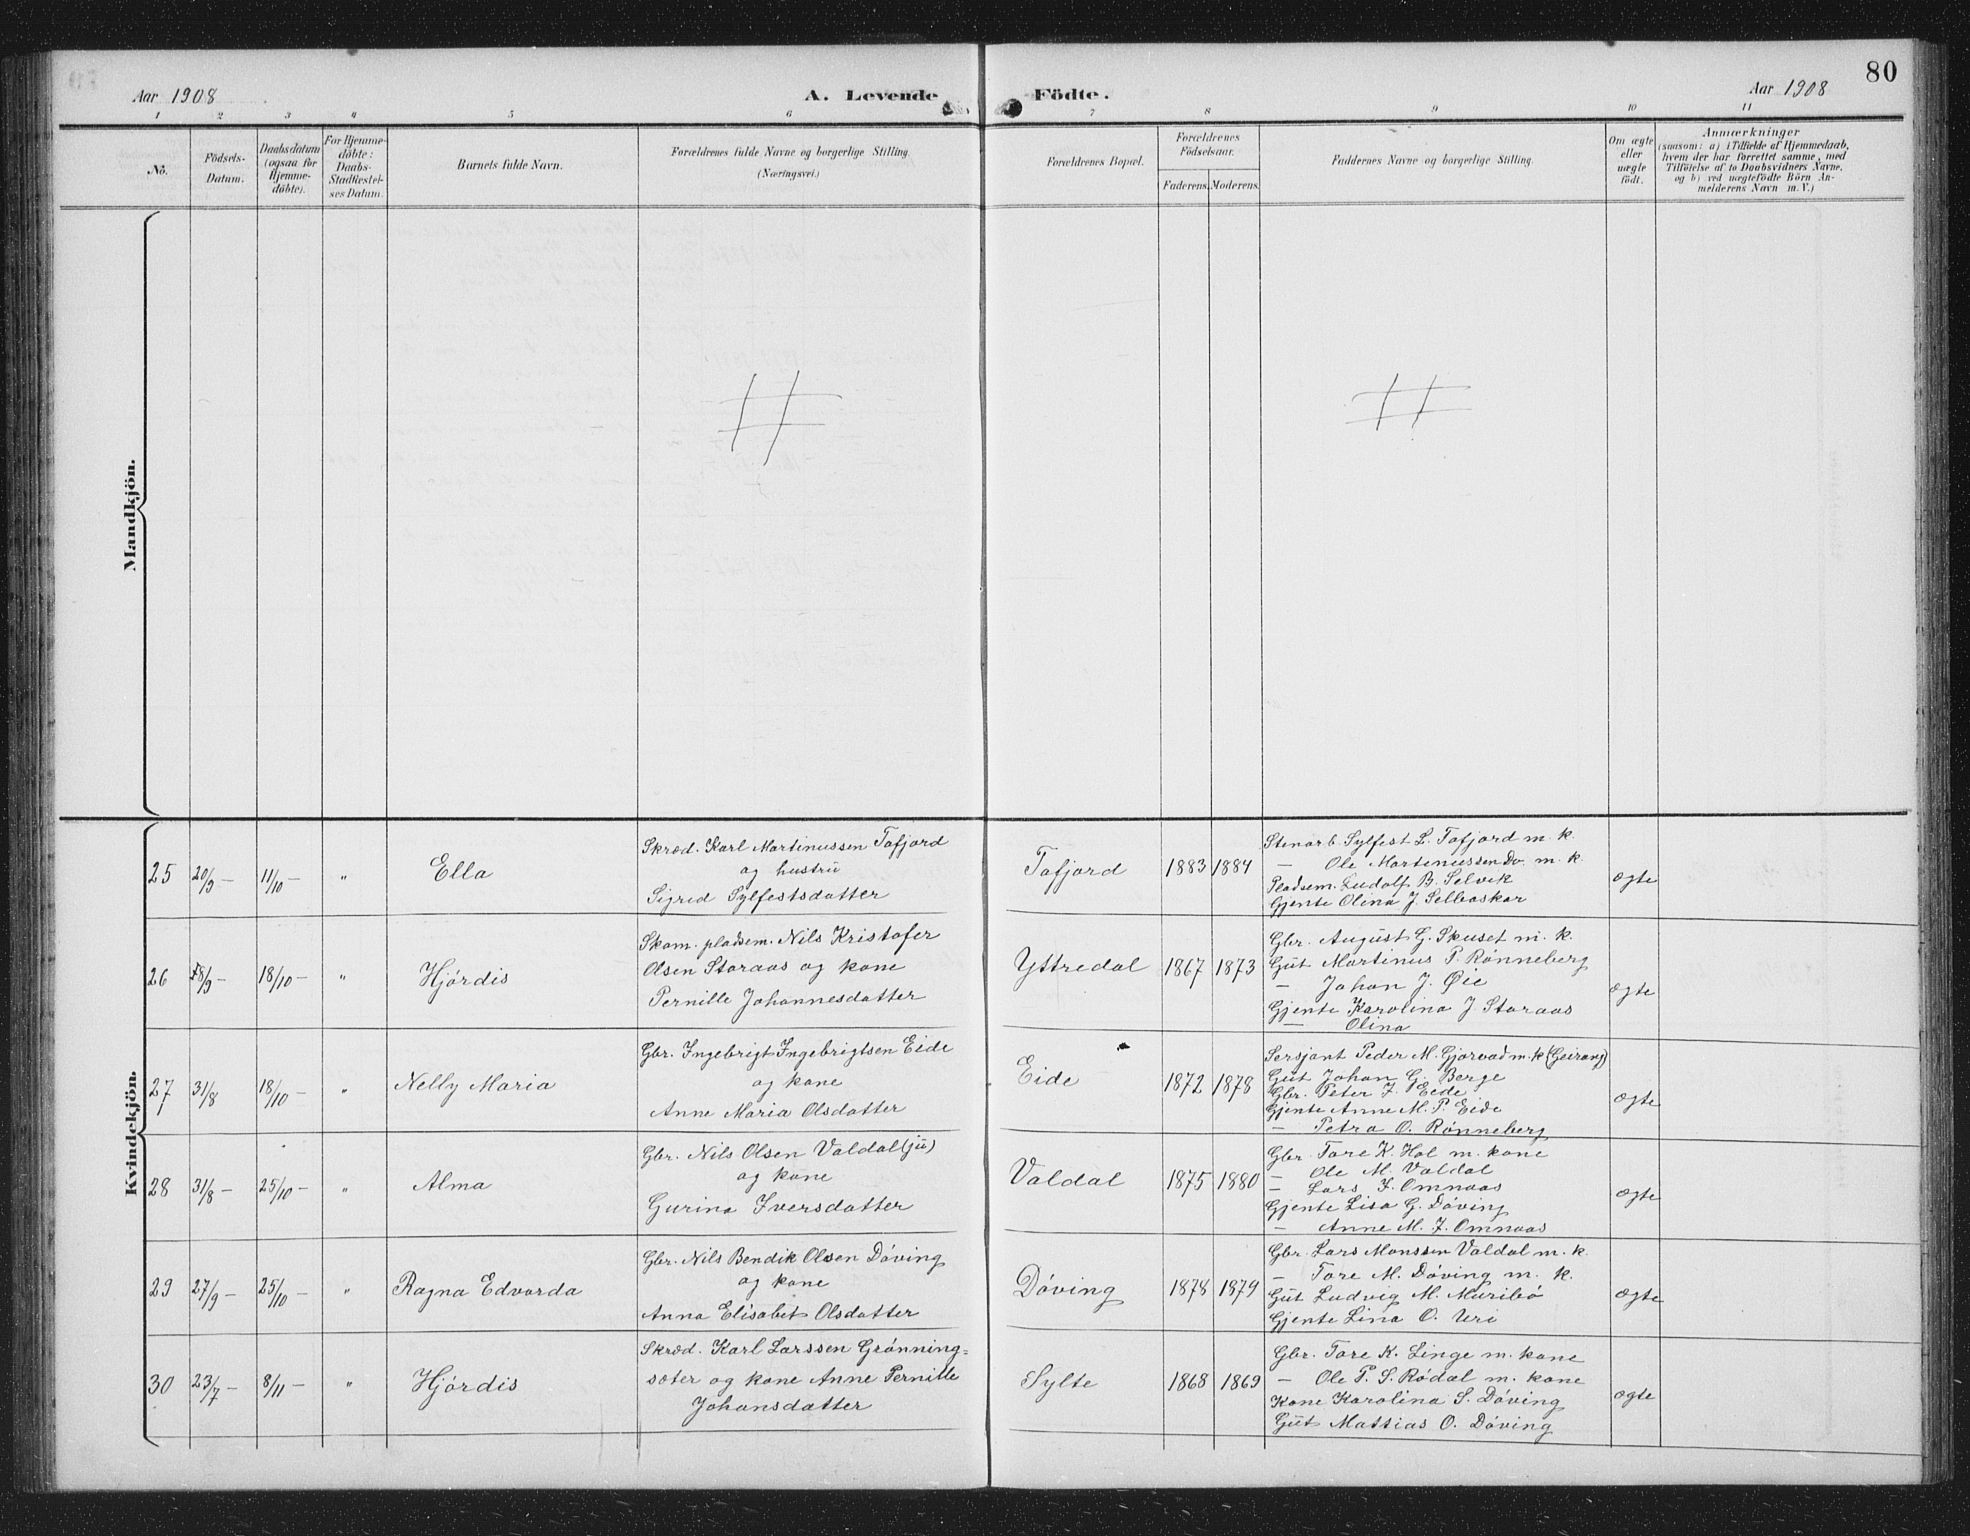 80
Aar 1908
A. Levende
Födte.
Aar 1908
1 2 3 4 5 6 7 8 9 10 11
No.
Födsels-
Datum.
Daabsdatum
(ogsaa for
Hjemme-
döbte).
For Hjemme-
döbte:
Daabs-
Stadfæstel-
ses Datum.
Barnets fulde Navn.
Forældrenes fulde Navne og borgerlige Stilling.
(Næringsvei.)
Forældrenes Bopæl.
Forældrenes
Födselsaar.
Faderens. Moderens.
Faddernes Navne og borgerlige Stilling.
Om ægte
eller
uægte
födt.
Anmærkninger
(saasom: a) i Tilfælde af Hjemmedaab,
hvem der har forrettet samme, med
Tilföielse af to Daabsvidners Navne,
og b) ved uægtefödte Börn An-
melderens Navn m. V.)
Mandkjön.
Kvindekjön.
25 20/9 — 11/10 — " Ella
Skræd. Karl Martinussen Tafjord
og hustrü
Sigrid Sylfestsdatter
Tafjord 1883 1884
Stenarb. Sylfest L. Tafjord m. k.
— Ole Martinussen Do. m. k.
Pladsem. Ludolf B. Selvik
Gjente Olina J. Selboskar
ægte
26 18/9 — 18/10 — " Hjórdis
Skom. pladsem. Nils Kristofer
Olsen Storaas og kone
Pernille Johannesdatter
Yttredal 1867 1873
Gbr. August G. Skuset m. k.
Güt Martinus P. Rønneberg
— Johan J. Øie
Gjente Karolina J. Storaas
— Olina
ægte
27 31/8 18/10 — " Nelly Maria
Gbr. Ingebrigt Ingebrigtsen Eide
og kone
Anne Maria Olsdatter
Eide 1872 1878
Sersjant Peder M. Gjørvad m. k (Geirang)
Güt Johan G. Berge
Gbr. Peter J. Eide
Gjente Anne M. P. Eide
— Petra O. Rønneberg
ægte
28 31/8 — 25/10 — " Alma
Gbr. Nils Olsen Valdal (jü)
og kone
Gurina Iversdatter
Valdal 1875 1880
Gbr. Tore K. Hol m. kone
— Ole M. Valdal
— Lars I. Omnaas
Gjente Lisa G. Dóving
— Anne M. I. Omnaas
ægte
29 27/9 — 25/10 — " Ragna Edvarda
Gbr. Nils Bendik Olsen Dóving
og kone
Anna Elisabet Olsdatter
Dóving 1878 1879
Gbr. Lars Monssen Valdal m. k.
— Tore M. Dóving m. k.
Güt Ludvig M. Muribó
Gjente Lina O. Uri
ægte
30 23/7 — 8/11 — " Hjórdis
Skræd. Karl Larssen Grónning=
sæter og kone Anne Pernille
Johansdatter
Sylte 1868 1869
Gbr. Tore K. Linge m. kone
— Ole P. S. Ródal m. kone
Kone Karolina S. Dóving
Güt Mattias O. Dóving
ægte